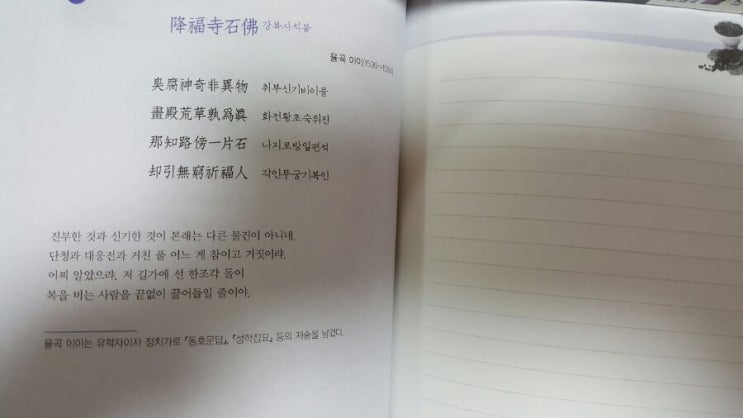 降福寺石佛 강복사석불
율곡 이이(1536~1584)
臭腐神奇非異物 취부신기비이물
畫殿荒草孰爲眞 화전황초숙위진
那知路傍一片石 나지로방일편석
却引無窮祈福人 각인무궁기복인
진부한 것과 신기한 것이 본래는 다른 물건이 아니네.
단청과 대웅전과 거친 풀 어느 게 참이고 거짓이랴.
어찌 알았으랴, 저 길가에 선 한조각 돌이
복을 비는 사람을 끝없이 끌어들일 줄이야.
율곡 이이는 유학자이자 정치가로 『동호문답』, 『성학집요』 등의 저술을 남겼다.